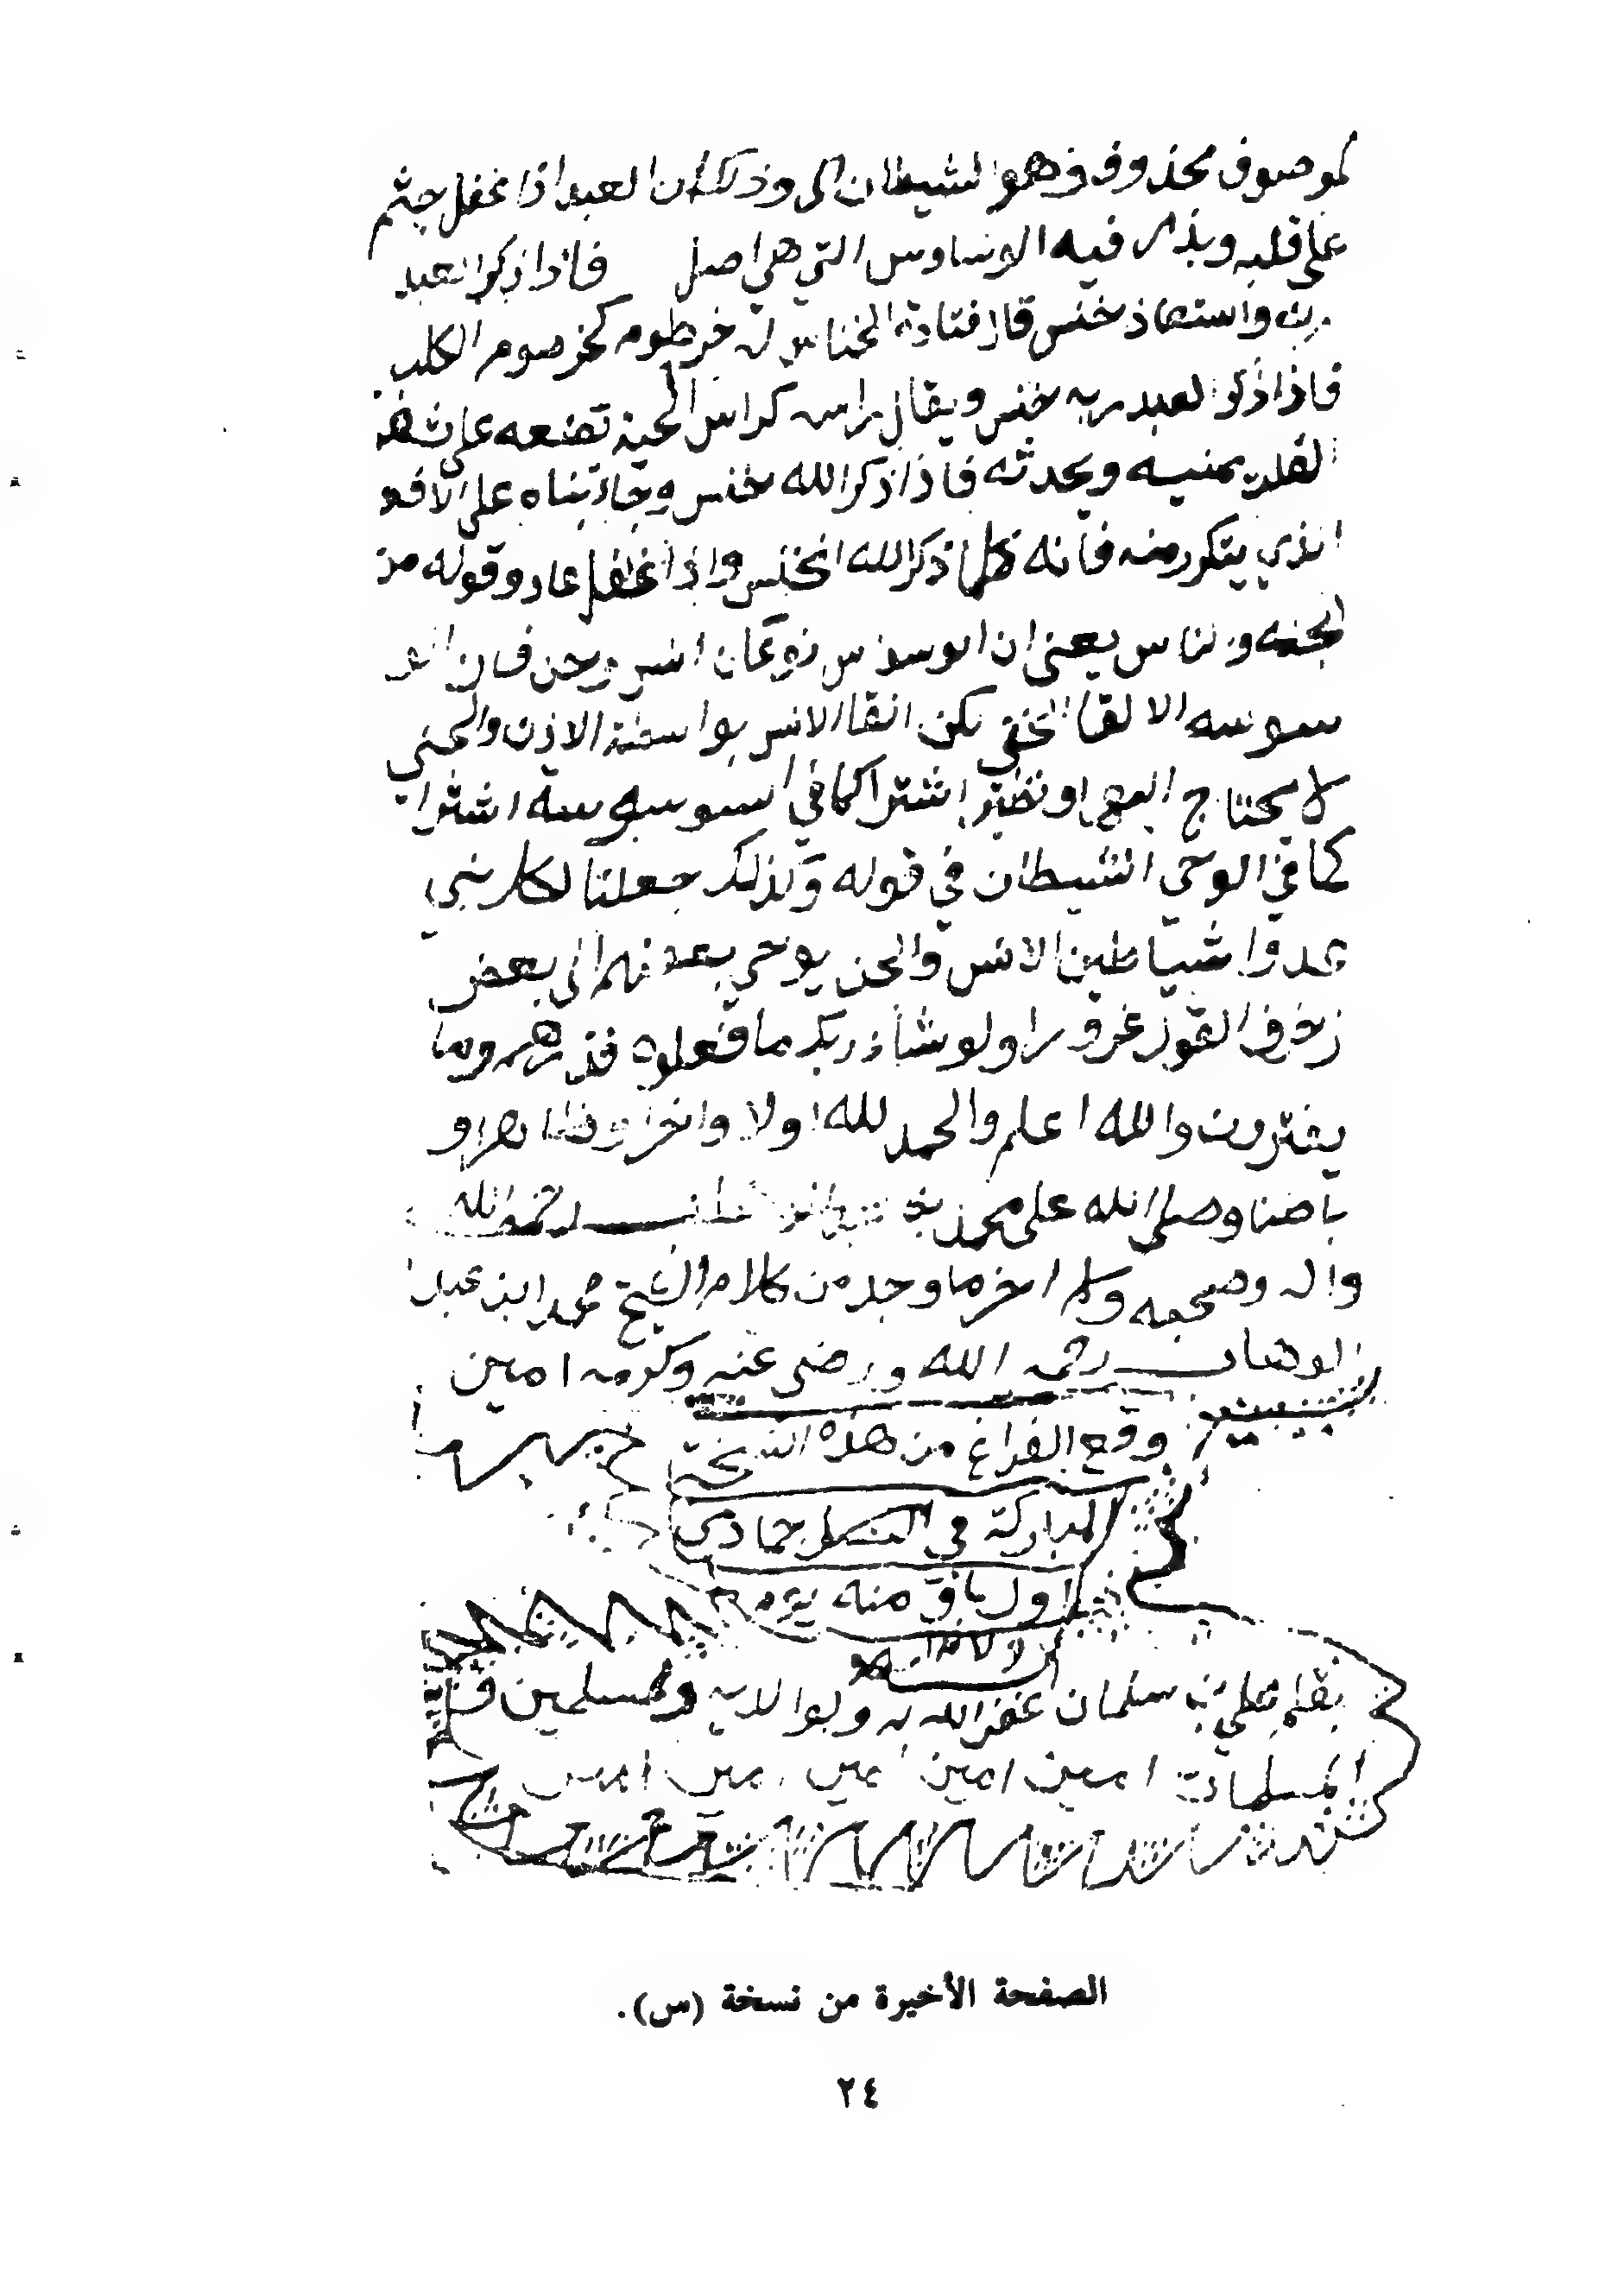 لموصوف محذوف وهو الشيطان الى وذلك ان العبد اذا غفل جثم
على قلبه وبذر فيه الوساوس التي هي اصل فاذا ذكر العبد
ربه واستعاذ خنس قال قتادة الخناس له خرطوم كخرصوم الكلب
فاذا ذكر العبد ربه خنس ويقال راسه كراس الحية تضعه على
القلب يمنيه ويحدثه فاذا ذكر الله خنس وجاء بناه على الافعا
الذي يتكرر منه فانه كلما ذكر الله انخنس واذا غفل عاد وقوله من
الجنه والناس يعني ان الوسواس نوعان انس وجن فان
سوسه الالقا الخفي لكن القا الانس بواسطة الاذن والجني
لا يحتاج اليها ونظير اشتراكما في الوسوسة اشترا
كما في الوحي الشيطان في قوله وكذلك جعلنا لكل نبي
عدوا شياطين الانس والجن يوحي بعضهم الى بعض
زخرف القول غرورا ولو شاء ربك ما فعلوه فذرهم وما
يفترون والله اعلم والحمد لله اولا واخرا وظاهرا و
باطنا وصلى الله على محمد رحمه الله
واله وصحبه وسلم اخر ما وجد من كلام الشيخ محمد ابن عبد
الوهاب رحمه الله ورضي عنه وكرمه امين
وقع الفراغ من هذه النسخة
المباركة في جمادى
اول باق منه يوم
بقلم علي بن سلمان غفر الله له ولوالديه والمسلمين
المسلمات امين امين امين امين امين
الصفحة الأخيرة من نسخة (س).
٢٤